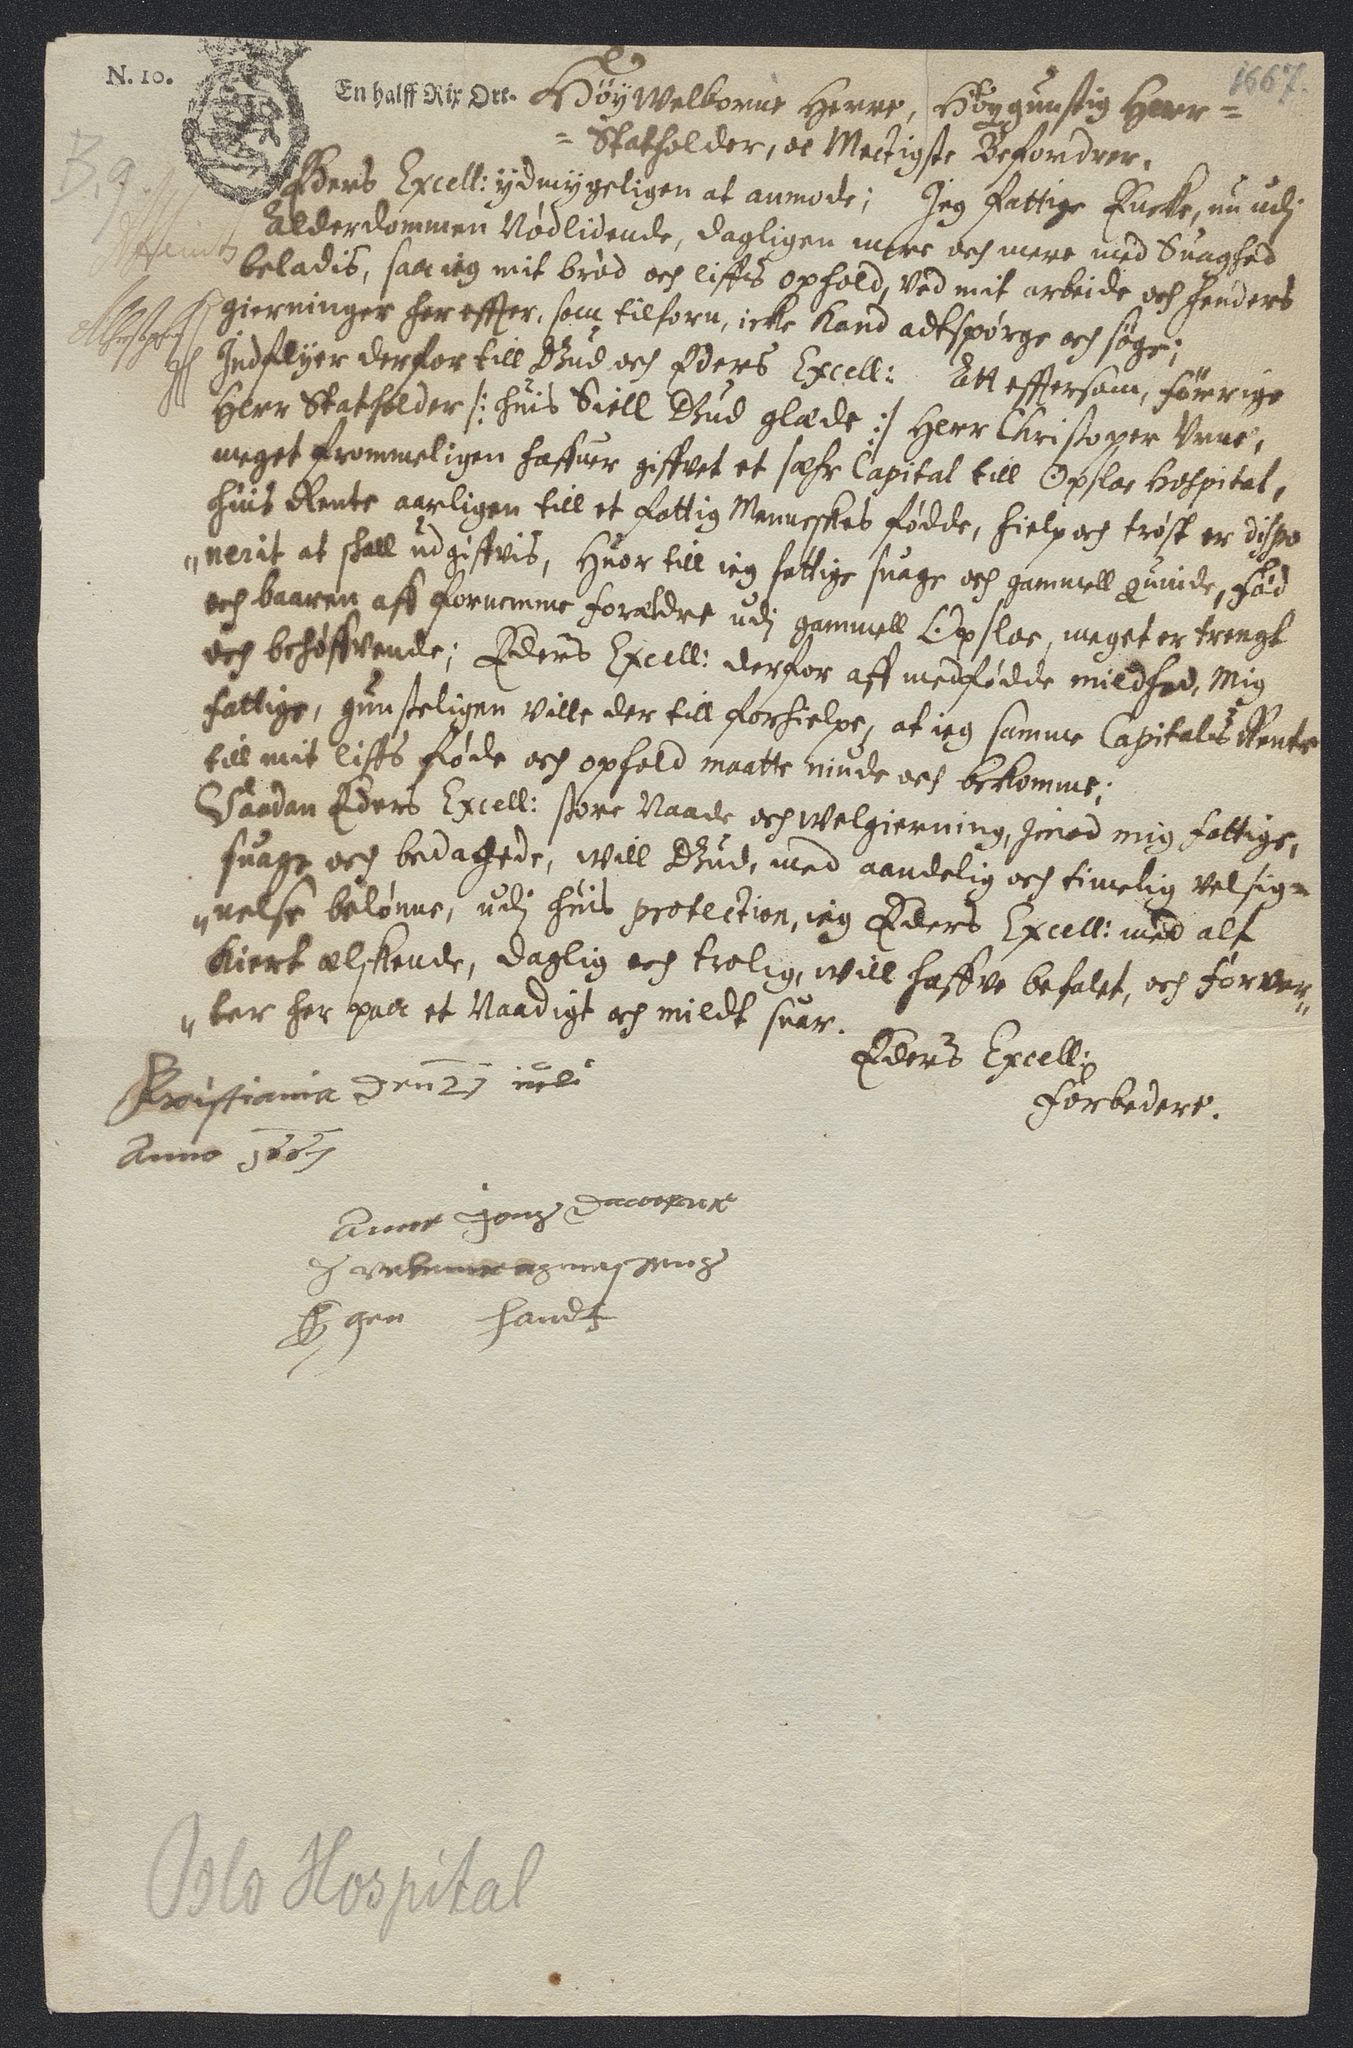 N. 10.
En halff Rix Ort.
1667.
Høy Welborne Herre, Høygunstig Herr =
= Statholder, oc Mectigste Befordrer.
B. 9
Eders Excell: ydmygeligen at anmode; Jeg fattige Encke, nu udj
Alderdommen Nødlidende, dagligen mere och mere med Suaghed
beladis, saa ieg mit brød och liffs ophold, ved mit arbeide och henders
gierninger her effter, som tilforn, icke kand adtspørge och søge;
Indflyer derfor till Gud och Eders Excell: Att efftersom, förrige
Herr Statholder /: huis Siell Gud glæde :/ Herr Christoper Vrne,
meget frommeligen haffuer giffvet et sær Capital till Opsloe Hospital,
huis Rente aarligen till et fattig Menneskes fødde, hielp och trøst er dispo
" nerit at skall udgiffvis, Huor till ieg fattige suage och gammell quinde, fød
och baaren aff fornemme forældre udj gammell Opsloe, meget er trengt
och behøffvende; Eders Excell: derfor aff medfødde mildhed, Mig
fattige, gunsteligen ville der till forhielpe, at ieg samme Capitals Rente
till mit liffs føde och ophold maatte niude och bekomme;
Saadan Eders Excell: store Naade och welgierning, imod mig fattige,
suage och bedagede, will Gud, med aandelig och timelig velsig=
" nelse belønne, udj huis protection, ieg Eders Excell: med alt
kiert ælskende, daglig och trolig, will haffve befalet, och forven"
" ter her paa et Naadigt och mildt suar.
Eders Excell:
Forbedere.
Kristiania den 27 iuli
Anno 1667
Anne
Egen handt
Oslo Hospital